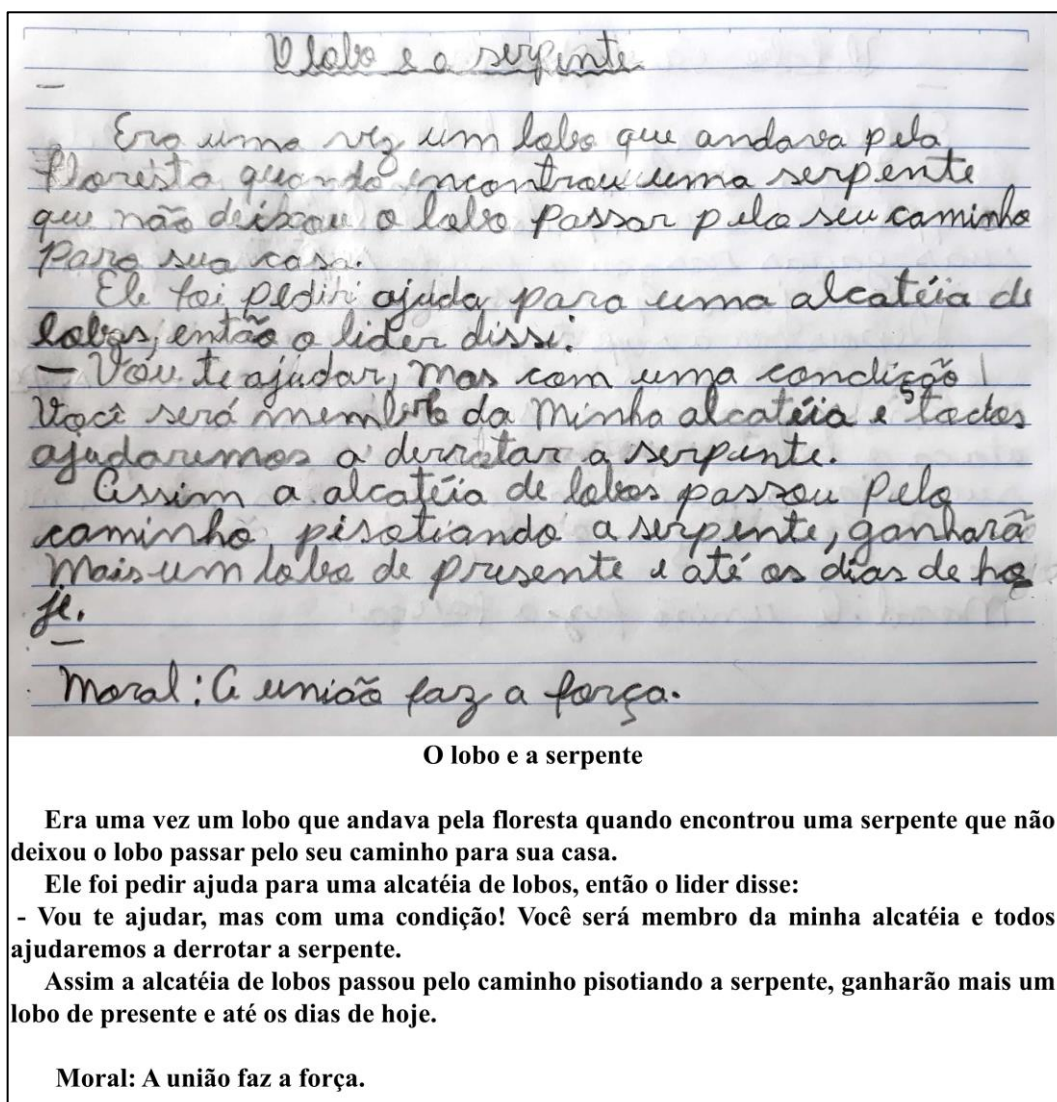 O lobo e a serpente.
Era uma vez um lobo que andava pela
floresta quando incontrou uma serpente
que não deixou o lobo passar pelo seu caminho
para sua casa.
Ele foi pedir ajuda para uma alcatéia de
lobos, então o lider disse:
— Vou te ajudar, mas com uma condição!
Você será membro da minha alcatéia e todos
ajudaremos a derrotar a serpente.
Assim a alcatéia de lobos passou pelo
caminho pisotiando a serpente, ganharã
mais um lobo de presente e até os dias de ho
je.
Moral: A união faz a força.
O lobo e a serpente
Era uma vez um lobo que andava pela floresta quando encontrou uma serpente que não
deixou o lobo passar pelo seu caminho para sua casa.
Ele foi pedir ajuda para uma alcatéia de lobos, então o lider disse:
- Vou te ajudar, mas com uma condição! Você será membro da minha alcatéia e todos
ajudaremos a derrotar a serpente.
Assim a alcatéia de lobos passou pelo caminho pisotiando a serpente, ganharão mais um
lobo de presente e até os dias de hoje.
Moral: A união faz a força.